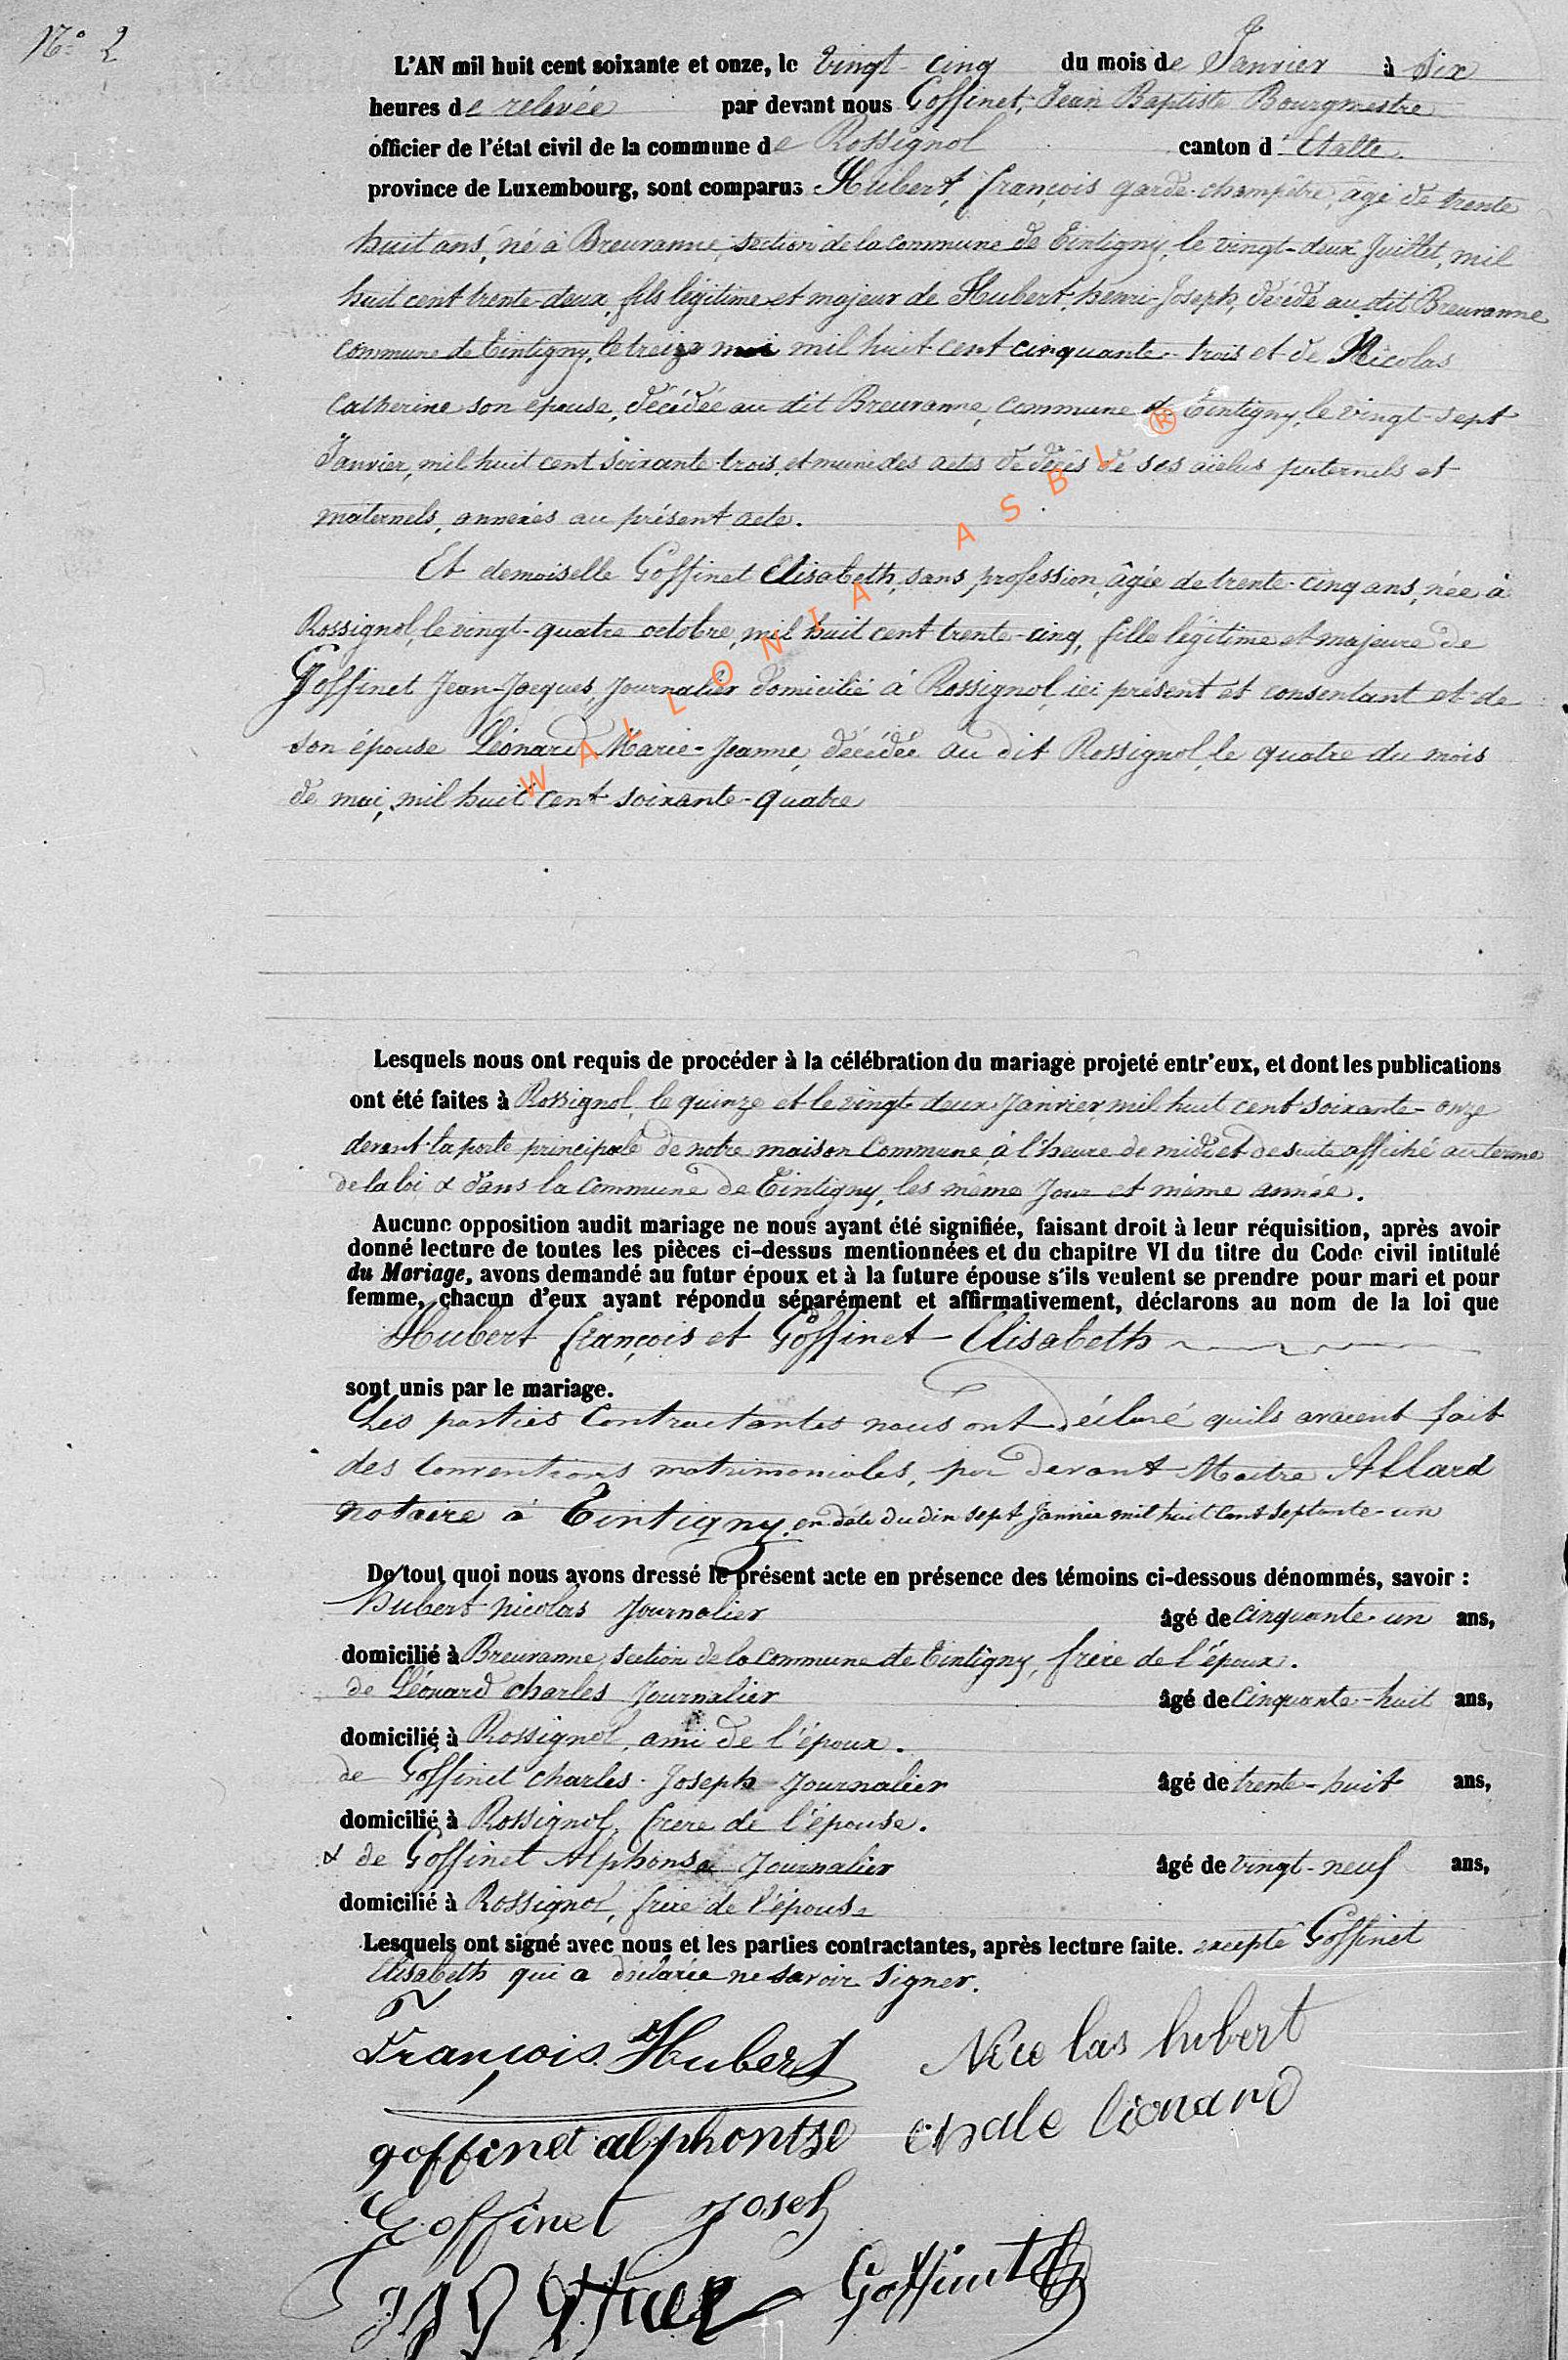 N° 2
L'AN mil huit cent soixante et onze, le vingt-cinq du mois de Janvier à Six
heures de relevée par devant nous Goffinet, Jean Baptiste Bourgmestre
officier de l'état civil de la commune de Rossignol canton d'Etalle
province de Luxembourg, sont comparus Hubert, françois garde-champêtre, âgé de trente
huit ans, né à Breuvanne, section de la commune de Tintigny, le vingt-deux Juillet, mil
huit cent trente-deux, fils légitime et majeur de Hubert, henri-Joseph, décédé au dit Breuvanne
commune de Tintigny, le treize mai mil huit cent cinquante-trois et de Nicolas
Catherine son épouse, décédée au dit Breuvanne, commune de Tintigny, le vingt-sept
Janvier, mil huit cent soixante-trois, et muni des actes de décès de ses aïeluls paternels et
maternels, annexés au présent acte.
Et demoiselle Goffinet Elisabeth, sans profession, âgée de trente-cinq ans, née à
Rossignol, le vingt-quatre octobre, mil huit cent trente-cinq, fille légitime et majeure de
Goffinet Jean-Jacques, Journalier domicilié à Rossignol, ici présent et consentant et de
son épouse Léonard Marie-Jeanne, décédée au dit Rossignol, le quatre du mois
de mai, mil huit cent soixante-quatre
WALLONIA ASBL ®
Lesquels nous ont requis de procéder à la célébration du mariage projeté entr'eux, et dont les publications
ont été faites à Rossignol, le quinze et le vingt-deux Janvier, mil huit cent soixante-onze
devant la porte principale de notre maison Commune, à l'heure de midi et de suite affiché au terme
de la loi & dans la commune de Tintigny, les même Jour et même année.
Aucune opposition audit mariage ne nous ayant été signifiée, faisant droit à leur réquisition, après avoir
donné lecture de toutes les pièces ci-dessus mentionnées et du chapitre VI du titre du Code civil intitulé
du Mariage, avons demandé au futur époux et à la future épouse s'ils veulent se prendre pour mari et pour
femme, chacun d'eux ayant répondu séparément et affirmativement, déclarons au nom de la loi que
Hubert françois et Goffinet Elisabeth
sont unis par le mariage.
Les parties Contractantes nous ont déclaré quils avaient fait
des Conventions matrimoniales, par devant Maitre Allard
notaire à Tintigny, en date du dix sept Janvier mil huit cent septante-un
De tout quoi nous avons dressé le présent acte en présence des témoins ci-dessous dénommés, savoir :
Hubert nicolas Journalier âgé de Cinquante-un ans,
domicilié à Breuvanne, section de la commune de Tintigny, frère de l'époux.
de Léonard charles Journalier âgé de Cinquante-huit ans,
domicilié à Rossignol, ami de l'époux.
de Goffinet charles-Joseph Journalier âgé de trente-huit ans,
domicilié à Rossignol, frère de l'épouse.
& de Goffinet Alphonse Journalier âgé de vingt-neuf ans,
domicilié à Rossignol, frère de l'épouse
Lesquels ont signé avec nous et les parties contractantes, après lecture faite. excepté Goffinet
Elisabeth qui a déclarée ne savoir signer.
François Hubert Nicolas hubert
goffinet alphontse chale lionard
Goffinet Joseh
Goffinet